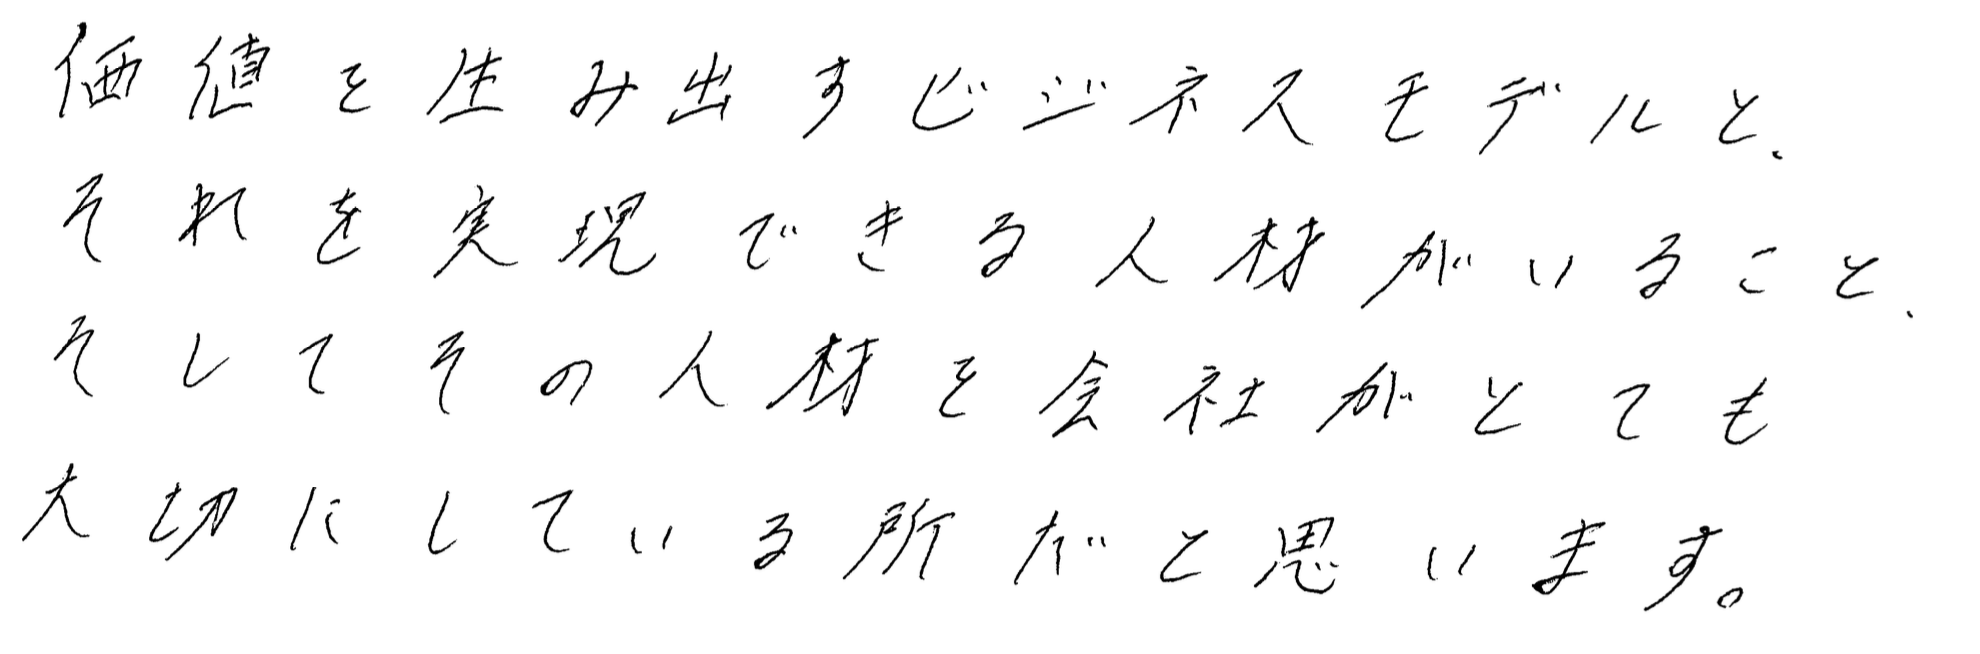 価値を生み出すビジネスモデルと、
それを実現できる人材がいること、
そしてその人材を会社がとても
大切にしている所だと思います。